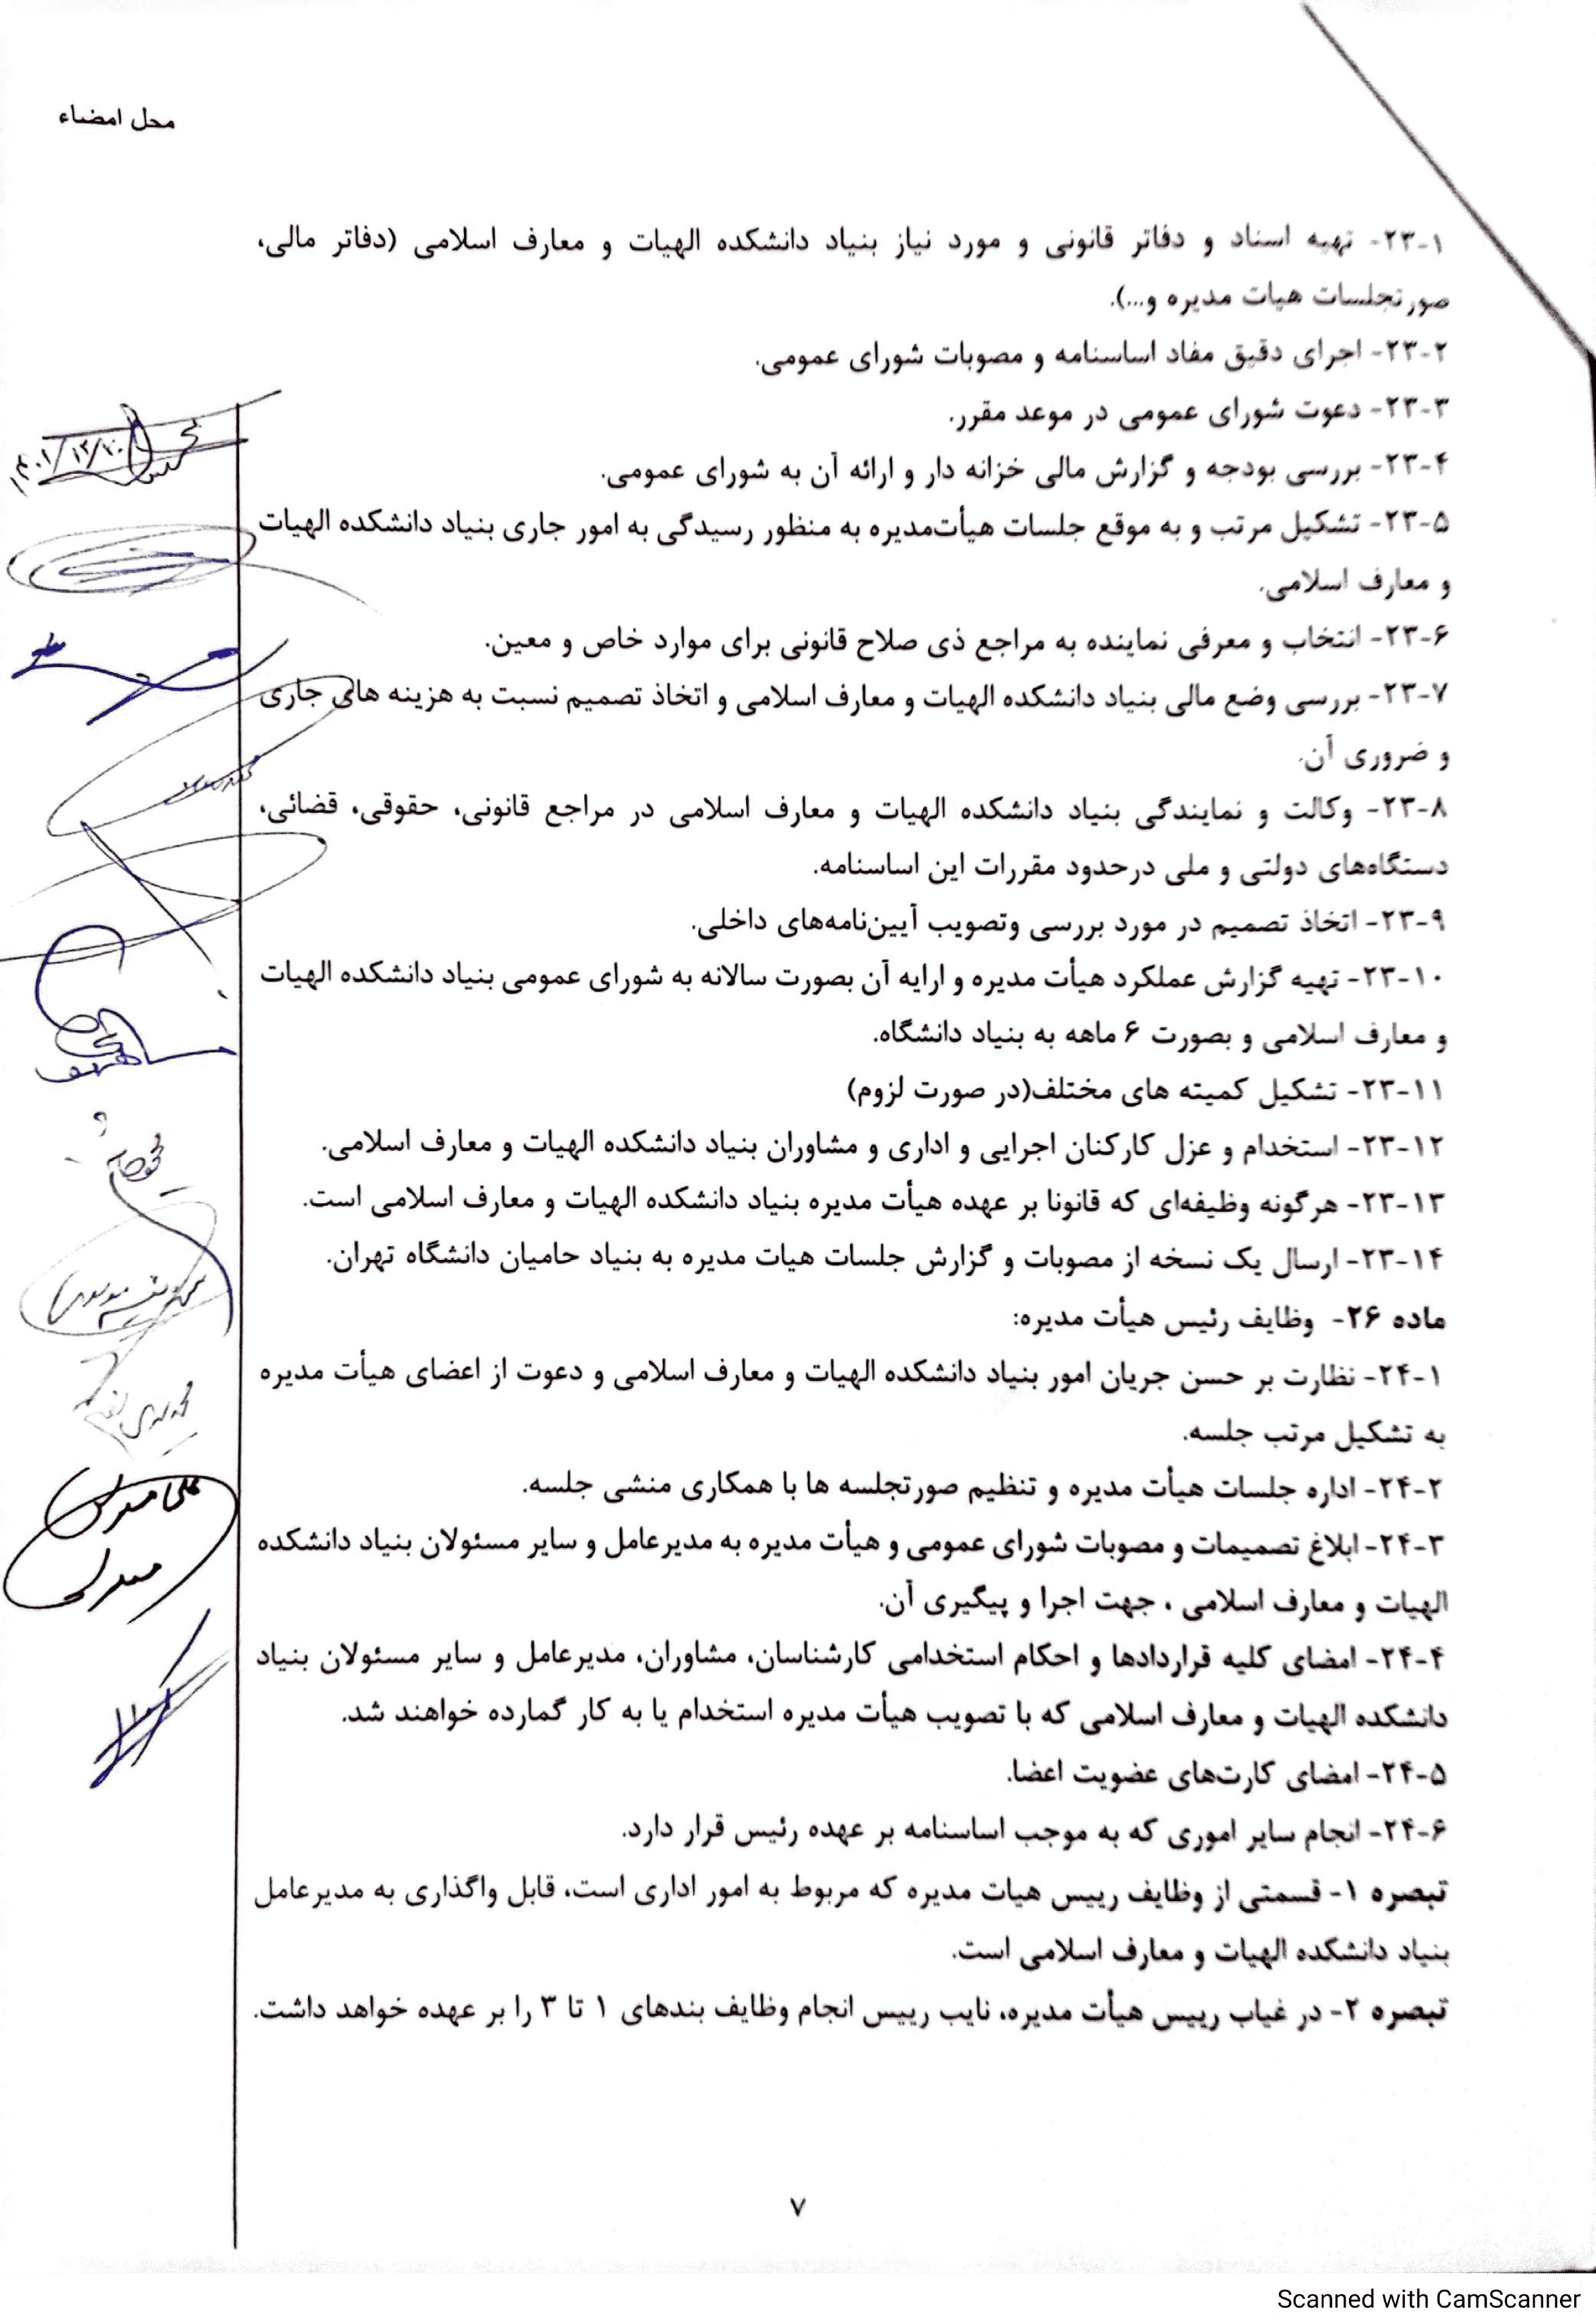 محل امضاء
۲۳-۱- تهیه اسناد و دفاتر قانونی و مورد نیاز بنیاد دانشکده الهیات و معارف اسلامی (دفاتر مالی،
صورتجلسات هیات مدیره و...).
۲۳-۲- اجرای دقیق مفاد اساسنامه و مصوبات شورای عمومی.
۲۳-۳- دعوت شورای عمومی در موعد مقرر.
۲۳-۴- بررسی بودجه و گزارش مالی خزانه دار و ارائه آن به شورای عمومی.
۲۳-۵- تشکیل مرتب و به موقع جلسات هیأت‌مدیره به منظور رسیدگی به امور جاری بنیاد دانشکده الهیات
و معارف اسلامی.
۲۳-۶- انتخاب و معرفی نماینده به مراجع ذی صلاح قانونی برای موارد خاص و معین.
۲۳-۷- بررسی وضع مالی بنیاد دانشکده الهیات و معارف اسلامی و اتخاذ تصمیم نسبت به هزینه های جاری
و ضروری آن.
۲۳-۸- وکالت و نمایندگی بنیاد دانشکده الهیات و معارف اسلامی در مراجع قانونی، حقوقی، قضائی،
دستگاه‌های دولتی و ملی درحدود مقررات این اساسنامه.
۲۳-۹- اتخاذ تصمیم در مورد بررسی وتصویب آیین‌نامه‌های داخلی.
۲۳-۱۰- تهیه گزارش عملکرد هیأت مدیره و ارایه آن بصورت سالانه به شورای عمومی بنیاد دانشکده الهیات
و معارف اسلامی و بصورت ۶ ماهه به بنیاد دانشگاه.
۲۳-۱۱- تشکیل کمیته های مختلف(در صورت لزوم)
۲۳-۱۲- استخدام و عزل کارکنان اجرایی و اداری و مشاوران بنیاد دانشکده الهیات و معارف اسلامی.
۲۳-۱۳- هرگونه وظیفه‌ای که قانونا بر عهده هیأت مدیره بنیاد دانشکده الهیات و معارف اسلامی است.
۲۳-۱۴- ارسال یک نسخه از مصوبات و گزارش جلسات هیات مدیره به بنیاد حامیان دانشگاه تهران.
ماده ۲۶- وظایف رئیس هیأت مدیره:
۲۴-۱- نظارت بر حسن جریان امور بنیاد دانشکده الهیات و معارف اسلامی و دعوت از اعضای هیأت مدیره
به تشکیل مرتب جلسه.
۲۴-۲- اداره جلسات هیأت مدیره و تنظیم صورتجلسه ها با همکاری منشی جلسه.
۲۴-۳- ابلاغ تصمیمات و مصوبات شورای عمومی و هیأت مدیره به مدیرعامل و سایر مسئولان بنیاد دانشکده
الهیات و معارف اسلامی ، جهت اجرا و پیگیری آن.
۲۴-۴- امضای کلیه قراردادها و احکام استخدامی کارشناسان، مشاوران، مدیرعامل و سایر مسئولان بنیاد
دانشکده الهیات و معارف اسلامی که با تصویب هیأت مدیره استخدام یا به کار گمارده خواهند شد.
۲۴-۵- امضای کارت‌های عضویت اعضا.
۲۴-۶- انجام سایر اموری که به موجب اساسنامه بر عهده رئیس قرار دارد.
تبصره ۱- قسمتی از وظایف رییس هیات مدیره که مربوط به امور اداری است، قابل واگذاری به مدیرعامل
بنیاد دانشکده الهیات و معارف اسلامی است.
تبصره ۲- در غیاب رییس هیأت مدیره، نایب رییس انجام وظایف بندهای ۱ تا ۳ را بر عهده خواهد داشت.
۱۴۰۱/۱۲/۲۰
۷
Scanned with CamScanner